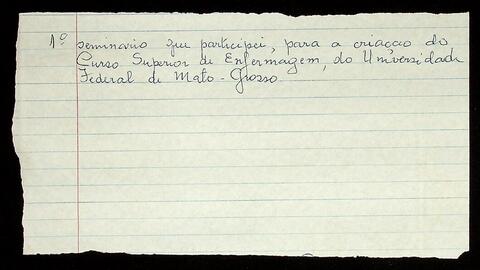 1º seminario que participei, para a criação do
Curso Superior de Enfermagem, do Universidade
Federal de Mato-Grosso.